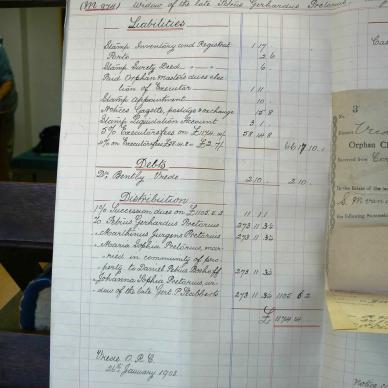 (M 974) Widow of the late Petrus Gerhardus Pretorius
Liabilities
Stamp Inventory and Registrat 1 17
Ports 2 6
Stamp Surety Deed 6
Paid Orphanmaster's dues elec
tion of Executor 1 11
Stamp Appointment 10
Notices Gazette, postage & exchange 15 8
Stamp Liquidation Account 3 1
5% Executorsfees on £1174.4/ 58 14 8
4% on Executorsfees £58.14.8 = £2.7/ 66 17 10
Debts
Dr. Bentley Vrede 2 10 2 10
Distribution
1% Succession dues on £1105.6.2 11 1 1
To Petrus Gerhardus Pretorius 273 11 3¼
Marthinus Jurgens Pretorius 273 11 3¼
Maria Sophia Pretorius, mar-
ried in community of pro-
perty to Daniel Petrus Boshoff 273 11 3¼
Johanna Sophia Pretorius, wi-
dow of the late Gert P. Stabberts 273 11 3¼ 1105 6 2
£ 1174 14
Vrede O.R.C.
24th January 1902
Cas
3
Vred
Orphan Ch
Received from
In the Estate of the la
S.M. van
the following Payments